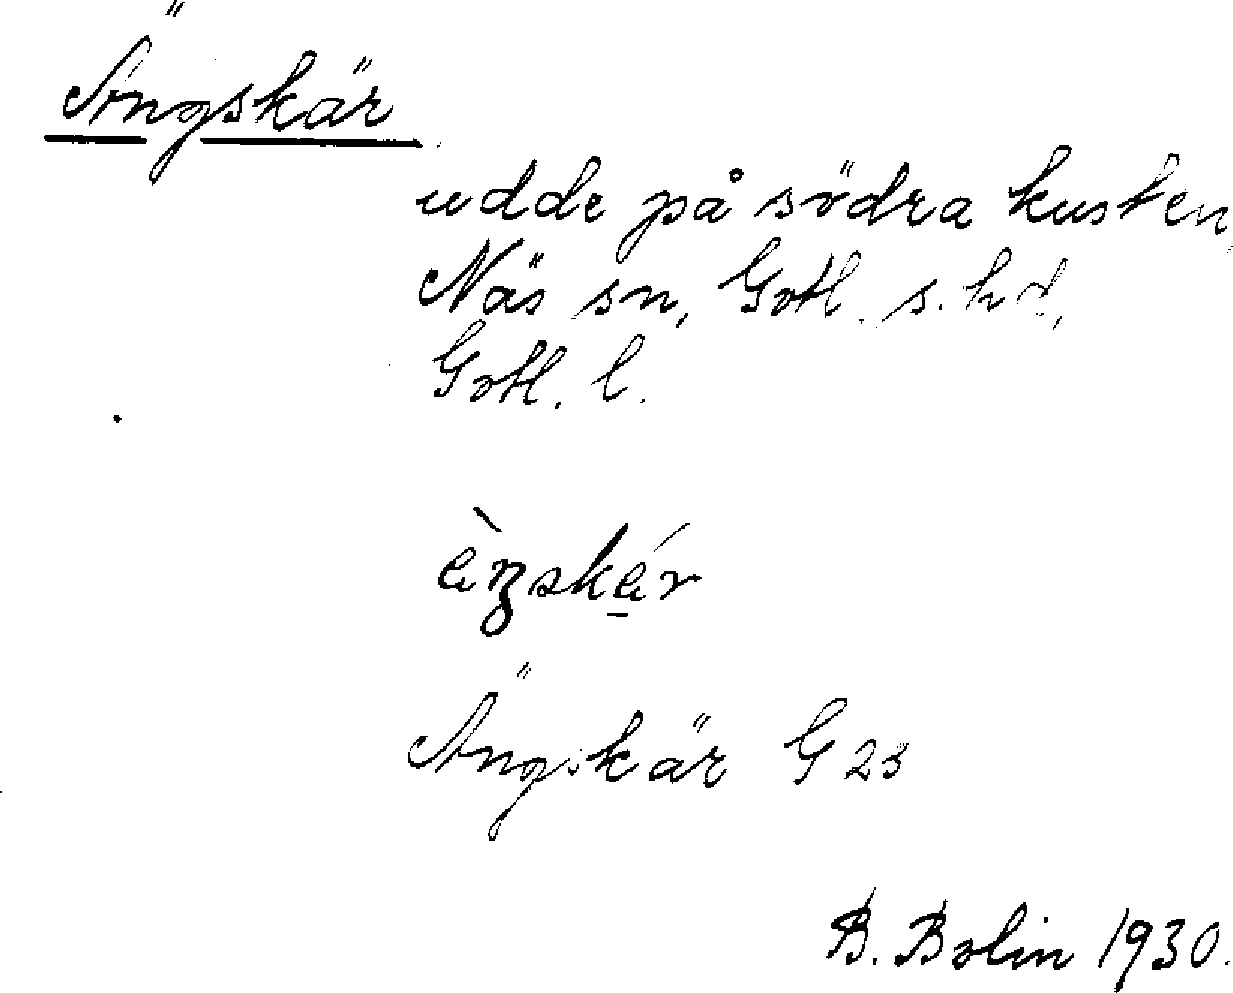 Ängskär
udde på södra kusten,
Näs sn, Gotl. s. hd,
Gotl. l.
Ängskär G 23
B. Bolin 1930.